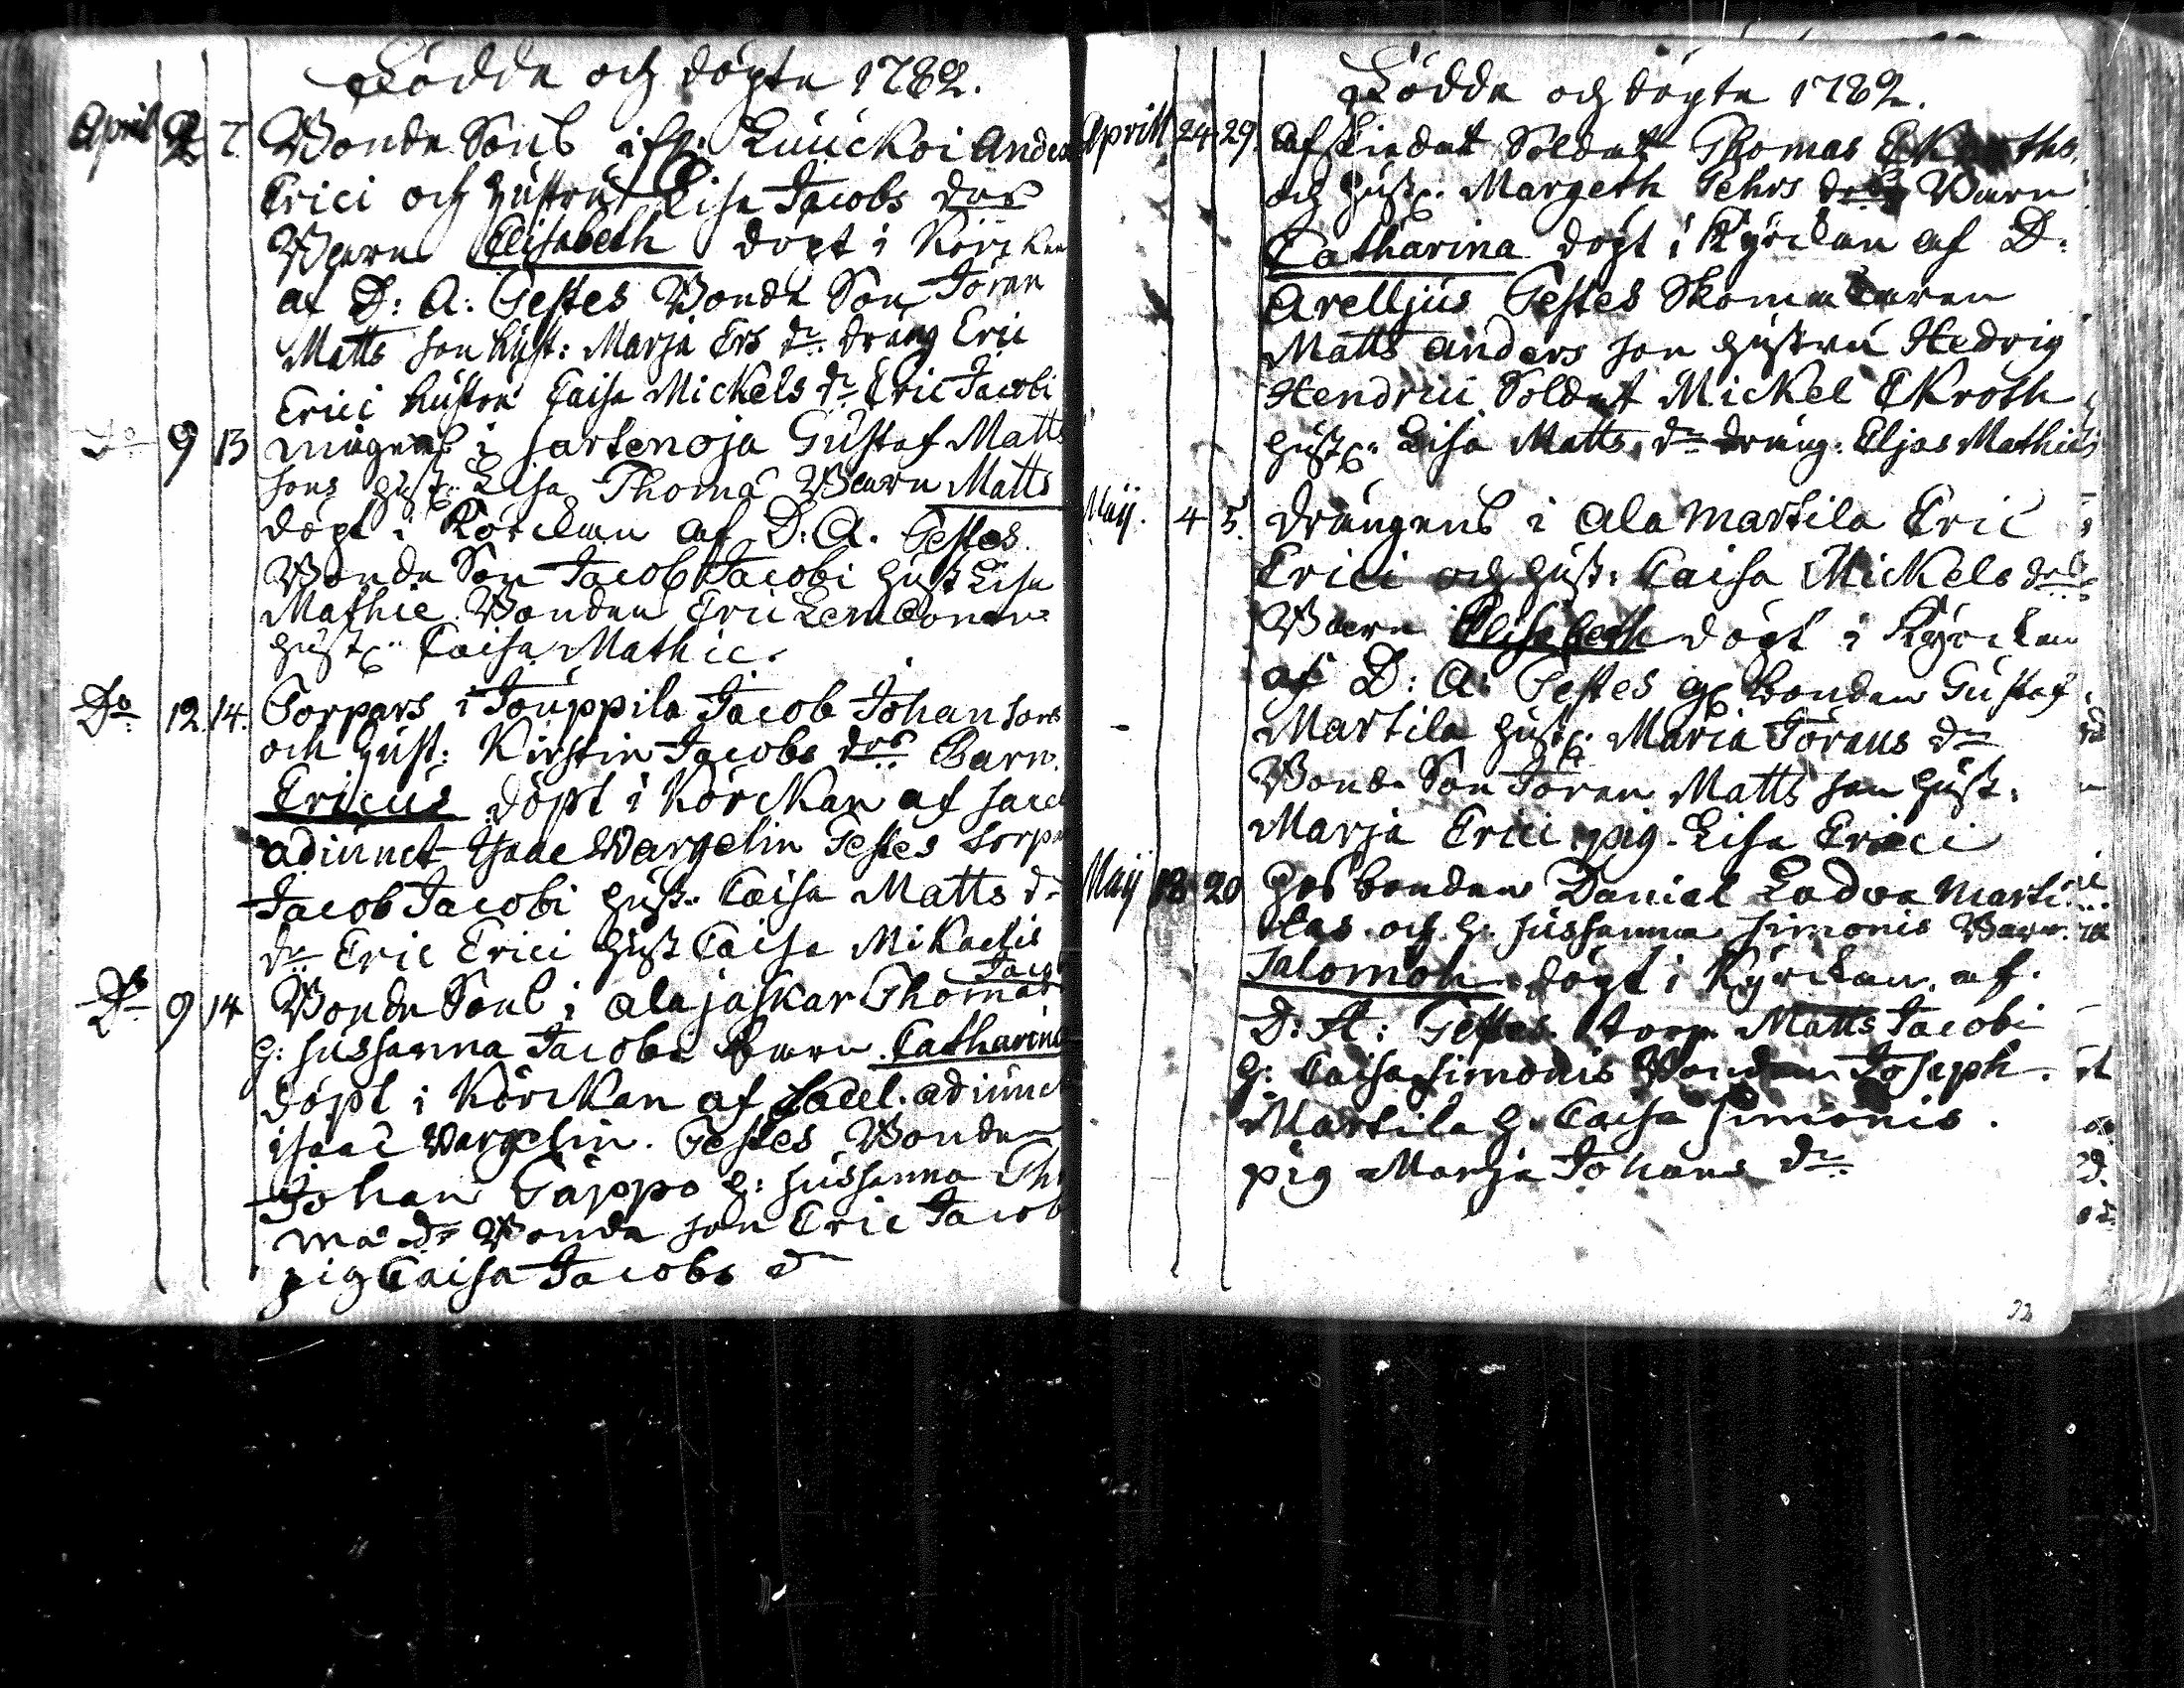 Födde och döpte 1782.
April 2 7 Bonde Sons ifr: Luuckoi Andea
Erici och hustru Lisa Jacobs dors
Barn Elisabeth döpt i Körckan
af D: A: Testes Bonde Son Jöran
Matts son hust: Marja Ers dr dräng Eric
Erici hustru Caisa Mickels dr Eric Jacobi
Do 9 13 mågens i sartenoja Gustaf Matts
sons hust: Lisa Thomæ Barn Matts
döpt i Körckan af D: A. Testes
Bonde Son Jacob Jacobi hust Lisa
Mathie Bonden Eric
hust: Caisa Mathie.
Do 12 14. Torpars i Jouppila Jacob Johan sons
och hust: Kirstin Jacobs drs Barn.
Ericus döpt i Körckan af sacel
adiunct Isaac Wargelin Testes torpa
Jacob Jacobi hust. Caisa Matts d
dr Eric Erici hust Caisa Mikaelis
Do 9 14 Bonde Sons i ala jaskar Thomas Jacob
h: sussanna Jacobs Barn Catharina
döpt i Körckan af Sacel. adiunct
isaac Wargelin. Testes Bonden
Johan Gäppo h: sussanna Tho
mæ dr Bonde son Eric Jacob
pig Caisa Jacobs d
Födde och döpte 1782.
Aprill 24 29. Afskiedat Soldat Thomas
och hust: Margeth Pehrs drs Barn
Catharina döpt i Kyrckan af D:
Arelljus Testes Skomakaren
Matts anders son hustru Hedvig
Hendrici Soldat Mickel EKroth
hust: Lisa Matts dr dräng: Eljas Mathie
Maij. 4 5. drängens i ala martila Eric
Erici och hust: Caisa Mickels drs
Barn Elisabeth döpt i Kyrckan
af D: A: Testes Bonden Gustaf
Martila hust: Maria Jörans dr
Bonde Son Jöran Matts son hust:
Marja Erici pig. Lisa Erici
Maij 18 20 hos bonden Daniel Lador Marti
las och h: sussanna simonis Barn.
Salomon döpt i Kyrckan. af.
D: A: Testes. torp. Matts Jacobi
h: Caisa simonis Bonden Joseph.
Martila h. Caisa simonis.
pig Marja Johans dr
72